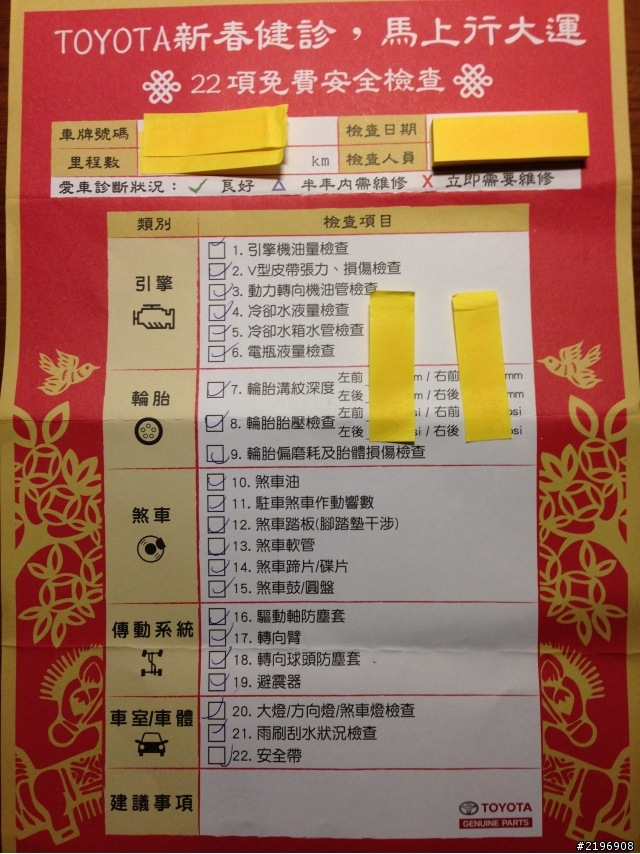 TOYOTA新春健診，馬上行大運
22項免費安全檢查
車牌號碼 檢查日期
里程數 km 檢查人員
愛車診斷狀況： ✓ 良好 △ 半年內需維修 X 立即需要維修
類別 檢查項目
引擎
1. 引擎機油量檢查
2. V型皮帶張力、損傷檢查
3. 動力轉向機油管檢查
4. 冷卻水液量檢查
5. 冷卻水箱水管檢查
6. 電瓶液量檢查
輪胎
7. 輪胎溝紋深度 左前 m / 右前 mm
左後 / 右後
8. 輪胎胎壓檢查 左前 / 右前 si
左後 / 右後 psi
9. 輪胎偏磨耗及胎體損傷檢查
煞車
10. 煞車油
11. 駐車煞車作動響數
12. 煞車踏板(腳踏墊干涉)
13. 煞車軟管
14. 煞車蹄片/碟片
15. 煞車鼓/圓盤
傳動系統
16. 驅動軸防塵套
17. 轉向臂
18. 轉向球頭防塵套
19. 避震器
車室/車體
20. 大燈/方向燈/煞車燈檢查
21. 雨刷刮水狀況檢查
22. 安全帶
建議事項
TOYOTA
GENUINE PARTS
#2196908